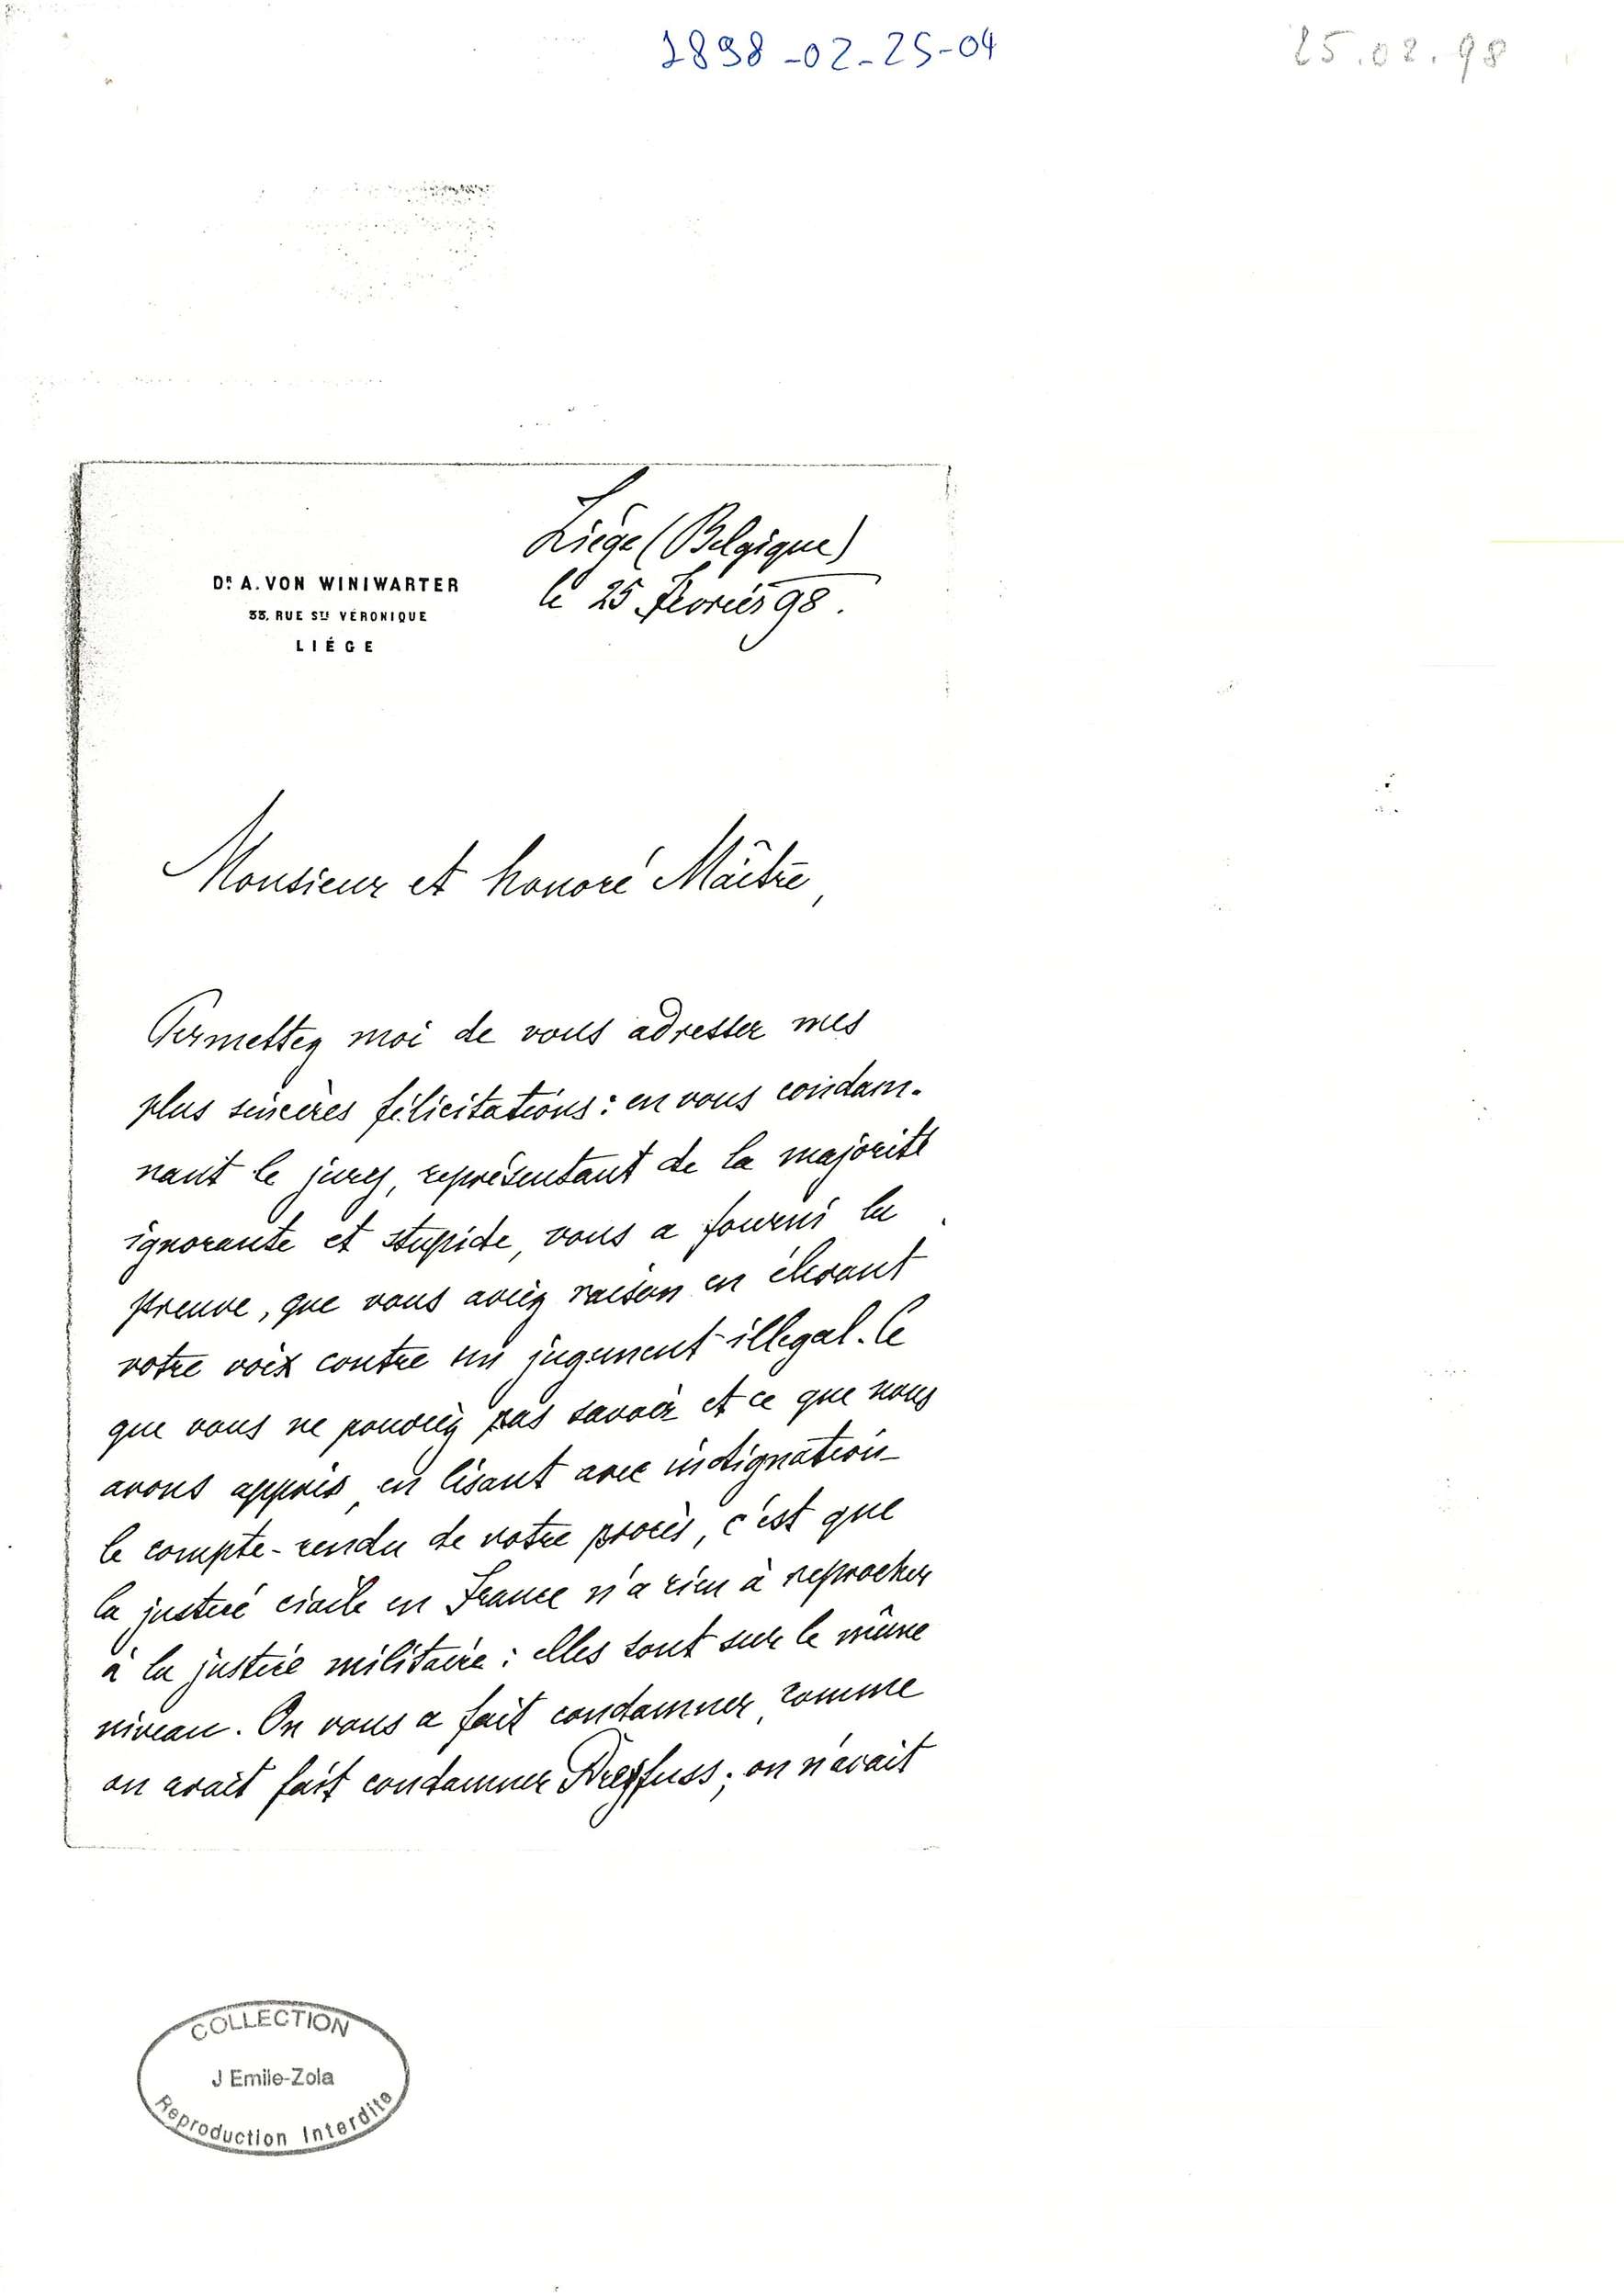 1898-02-25-04
25.02.98
Liége (Belgique)
le 25 Fevrier 98.
Dr. A. VON WINIWARTER
33, RUE Ste VÉRONIQUE
LIÉGE
Monsieur et honoré Maître,
Permettez moi de vous adresser mes
plus sincères félicitations: en vous condam-
nant le jury, représentant de la majorité
ignorante et stupide, vous a fourni la
preuve, que vous aviez raison en élevant
votre voix contre un jugement illégal. Ce
que vous ne pouviez pas savoir et ce que nous
avons appris, en lisant avec indignation
le compte-rendu de votre procès, c'est que
la justice civile en France n'a rien à reprocher
à la justice militaire: elles sont sur le même
niveau. On vous a fait condamner, comme
on avait fait condamner Dreyfuss; on n'avait
COLLECTION
J Emile-Zola
Reproduction Interdite